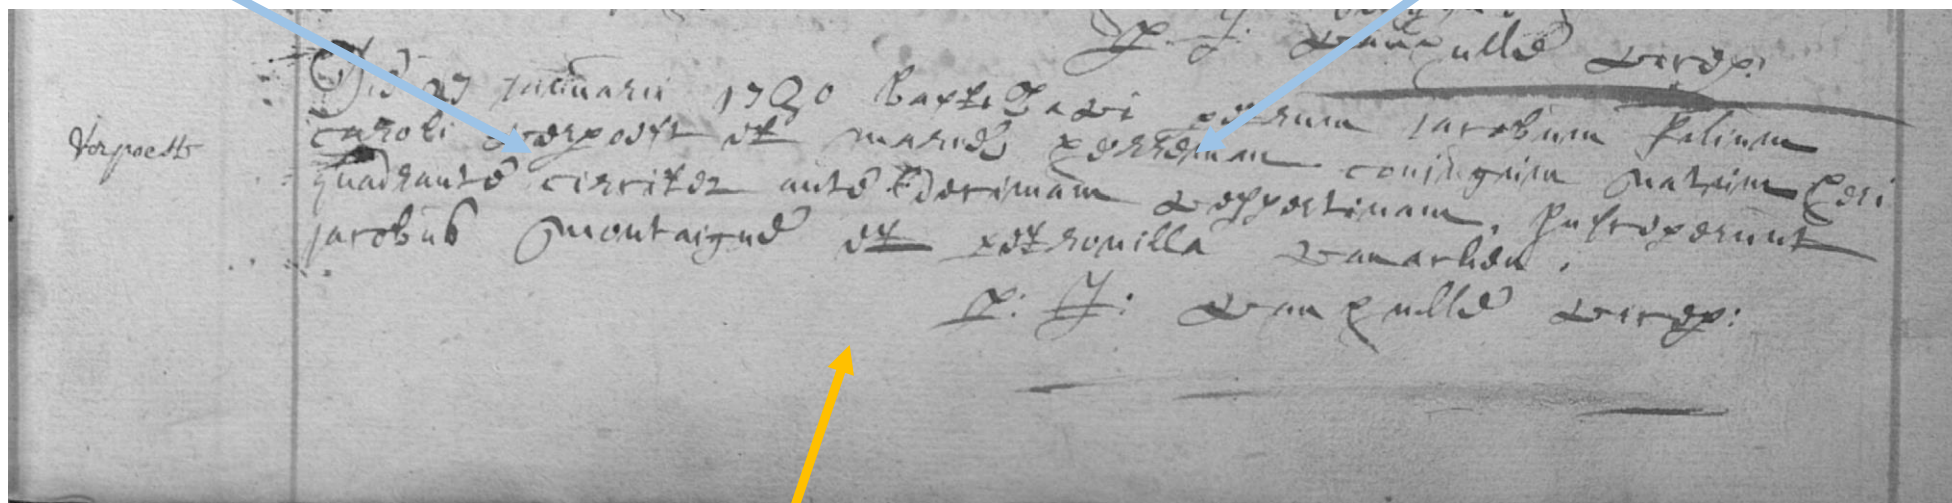 P. J. van pullé vicep:
Verpoest
Die 27 januarii 1720 baptizavi petrum jacobum filium
caroli verpoest et mariæ conjugum natum heri
quadrante circiter ante decimam vespertinam, susceperunt
jacobus montaigne et petronilla vanackeu.
P: J: van pullé vicep: